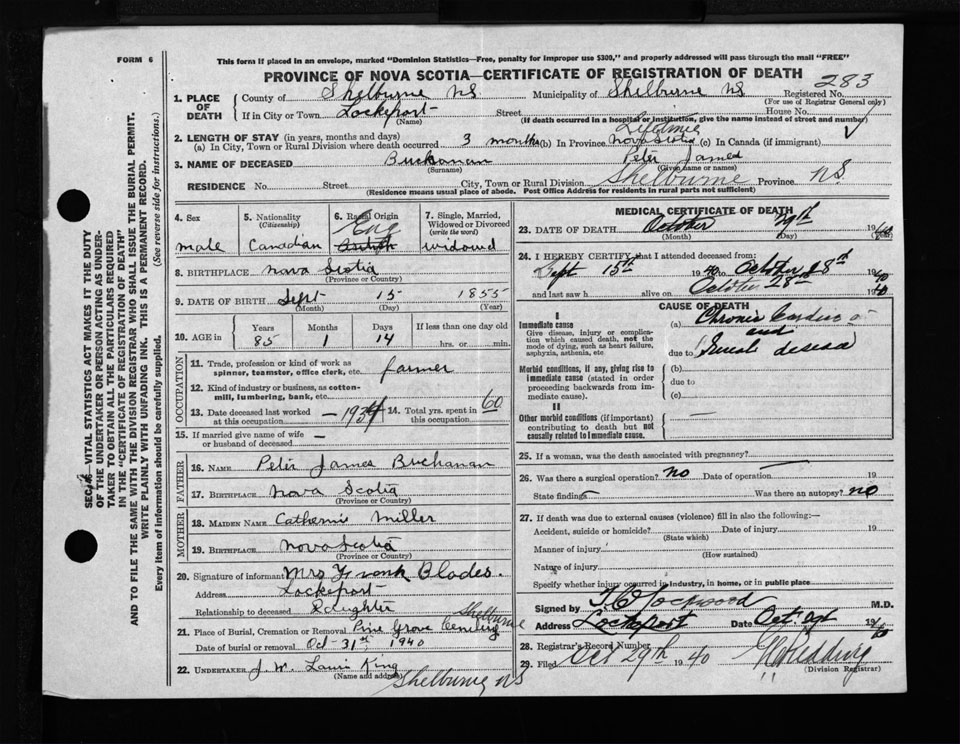 FORM 6
This form if placed in an envelope, marked "Dominion Statistics—Free, penalty for improper use $300," and properly addressed will pass through the mail "FREE"
PROVINCE OF NOVA SCOTIA—CERTIFICATE OF REGISTRATION OF DEATH
283
1. PLACE OF DEATH
County of Shelburne NS Municipality of Shelburne NS Registered No.
(For use of Registrar General only)
If in City or Town Lockeport Street House No.
(Name) (If death occurred in a hospital or institution, give the name instead of street and number)
2. LENGTH OF STAY (in years, months and days)
(a) In City, Town or Rural Division where death occurred 3 months (b) In Province Lifetime Nova Scotia (c) In Canada (if immigrant)
3. NAME OF DECEASED Buchanan Peter James
(Surname) (Given name or names)
RESIDENCE No. Street City, Town or Rural Division Shelburne Province NS.
(Residence means usual place of abode. Post Office Address for residents in rural parts not sufficient)
4. Sex male
5. Nationality (Citizenship) Canadian
6. Racial Origin Eng
7. Single, Married, Widowed or Divorced (write the word) widowd
8. BIRTHPLACE Nova Scotia
(Province or Country)
9. DATE OF BIRTH Sept 15 1855
(Month) (Day) (Year)
10. AGE in Years 85 Months 1 Days 14 If less than one day old
hrs. or min.
OCCUPATION
11. Trade, profession or kind of work as spinner, teamster, office clerk, etc. farmer
12. Kind of industry or business, as cotten-mill, lumbering, bank, etc.
13. Date deceased last worked at this occupation — 1934 14. Total yrs. spent in this occupation 60
15. If married give name of wife or husband of deceased —
FATHER
16. NAME Peter James Buchanan
17. BIRTHPLACE Nova Scotia
(Province or Country)
MOTHER
18. MAIDEN NAME Catherine Miller
19. BIRTHPLACE Nova Scotia
(Province or Country)
20. Signature of informant Mrs Frank Blades.
Address Lockeport
Relationship to deceased Daughter
21. Place of Burial, Cremation or Removal Pine Grove Cemetery Shelburne
Date of burial or removal Oct 31st 1940
22. UNDERTAKER J. W. King
(Name and address) Shelburne NS
MEDICAL CERTIFICATE OF DEATH
23. DATE OF DEATH October 29th 1940
(Month) (Day) (Year)
24. I HEREBY CERTIFY that I attended deceased from:
Sept 15th 1940 to October 28th 1940
and last saw h alive on October 28th 1940
CAUSE OF DEATH
I
Immediate cause
Give disease, injury or complication which caused death, not the mode of dying, such as heart failure, asphyxia, asthenia, etc
(a) Chronic Cardiac
and
due to
Morbid conditions, if any, giving rise to immediate cause (stated in order proceeding backwards from immediate cause).
(b)
due to
(c)
II
Other morbid conditions (if important) contributing to death but not causally related to immediate cause.
25. If a woman, was the death associated with pregnancy?
26. Was there a surgical operation? no Date of operation 19
State findings Was there an autopsy? no
27. If death was due to external causes (violence) fill in also the following:—
Accident, suicide or homicide? Date of injury 19
(State which)
Manner of injury
(How sustained)
Nature of injury
Specify whether injury occurred in industry, in home, or in public place
Signed by Lockwood M.D.
Address Lockeport Date Oct. 1940
28. Registrar's Record Number
29. Filed Oct 29th 1940 Redding
(Division Registrar)
SEC. —VITAL STATISTICS ACT MAKES IT THE DUTY
OF THE UNDERTAKER OR PERSON ACTING AS UNDERTAKER TO OBTAIN ALL THE PARTICULARS REQUIRED
IN THE "CERTIFICATE OF REGISTRATION OF DEATH"
AND TO FILE THE SAME WITH THE DIVISION REGISTRAR WHO SHALL ISSUE THE BURIAL PERMIT.
WRITE PLAINLY WITH UNFADING INK. THIS IS A PERMANENT RECORD.
Every item of information should be carefully supplied. (See reverse side for instructions.)